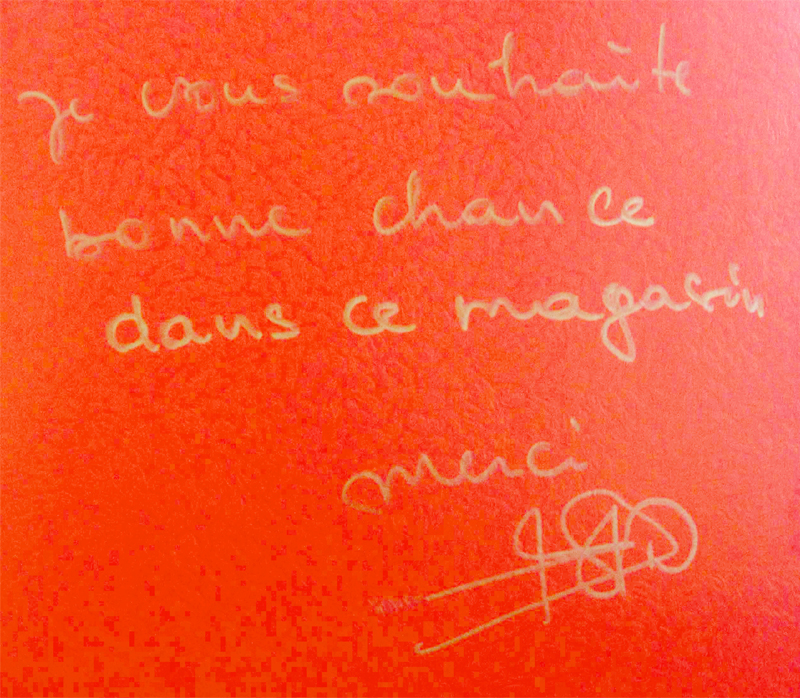 je vous souhaite
bonne chance
dans ce magasin
merci